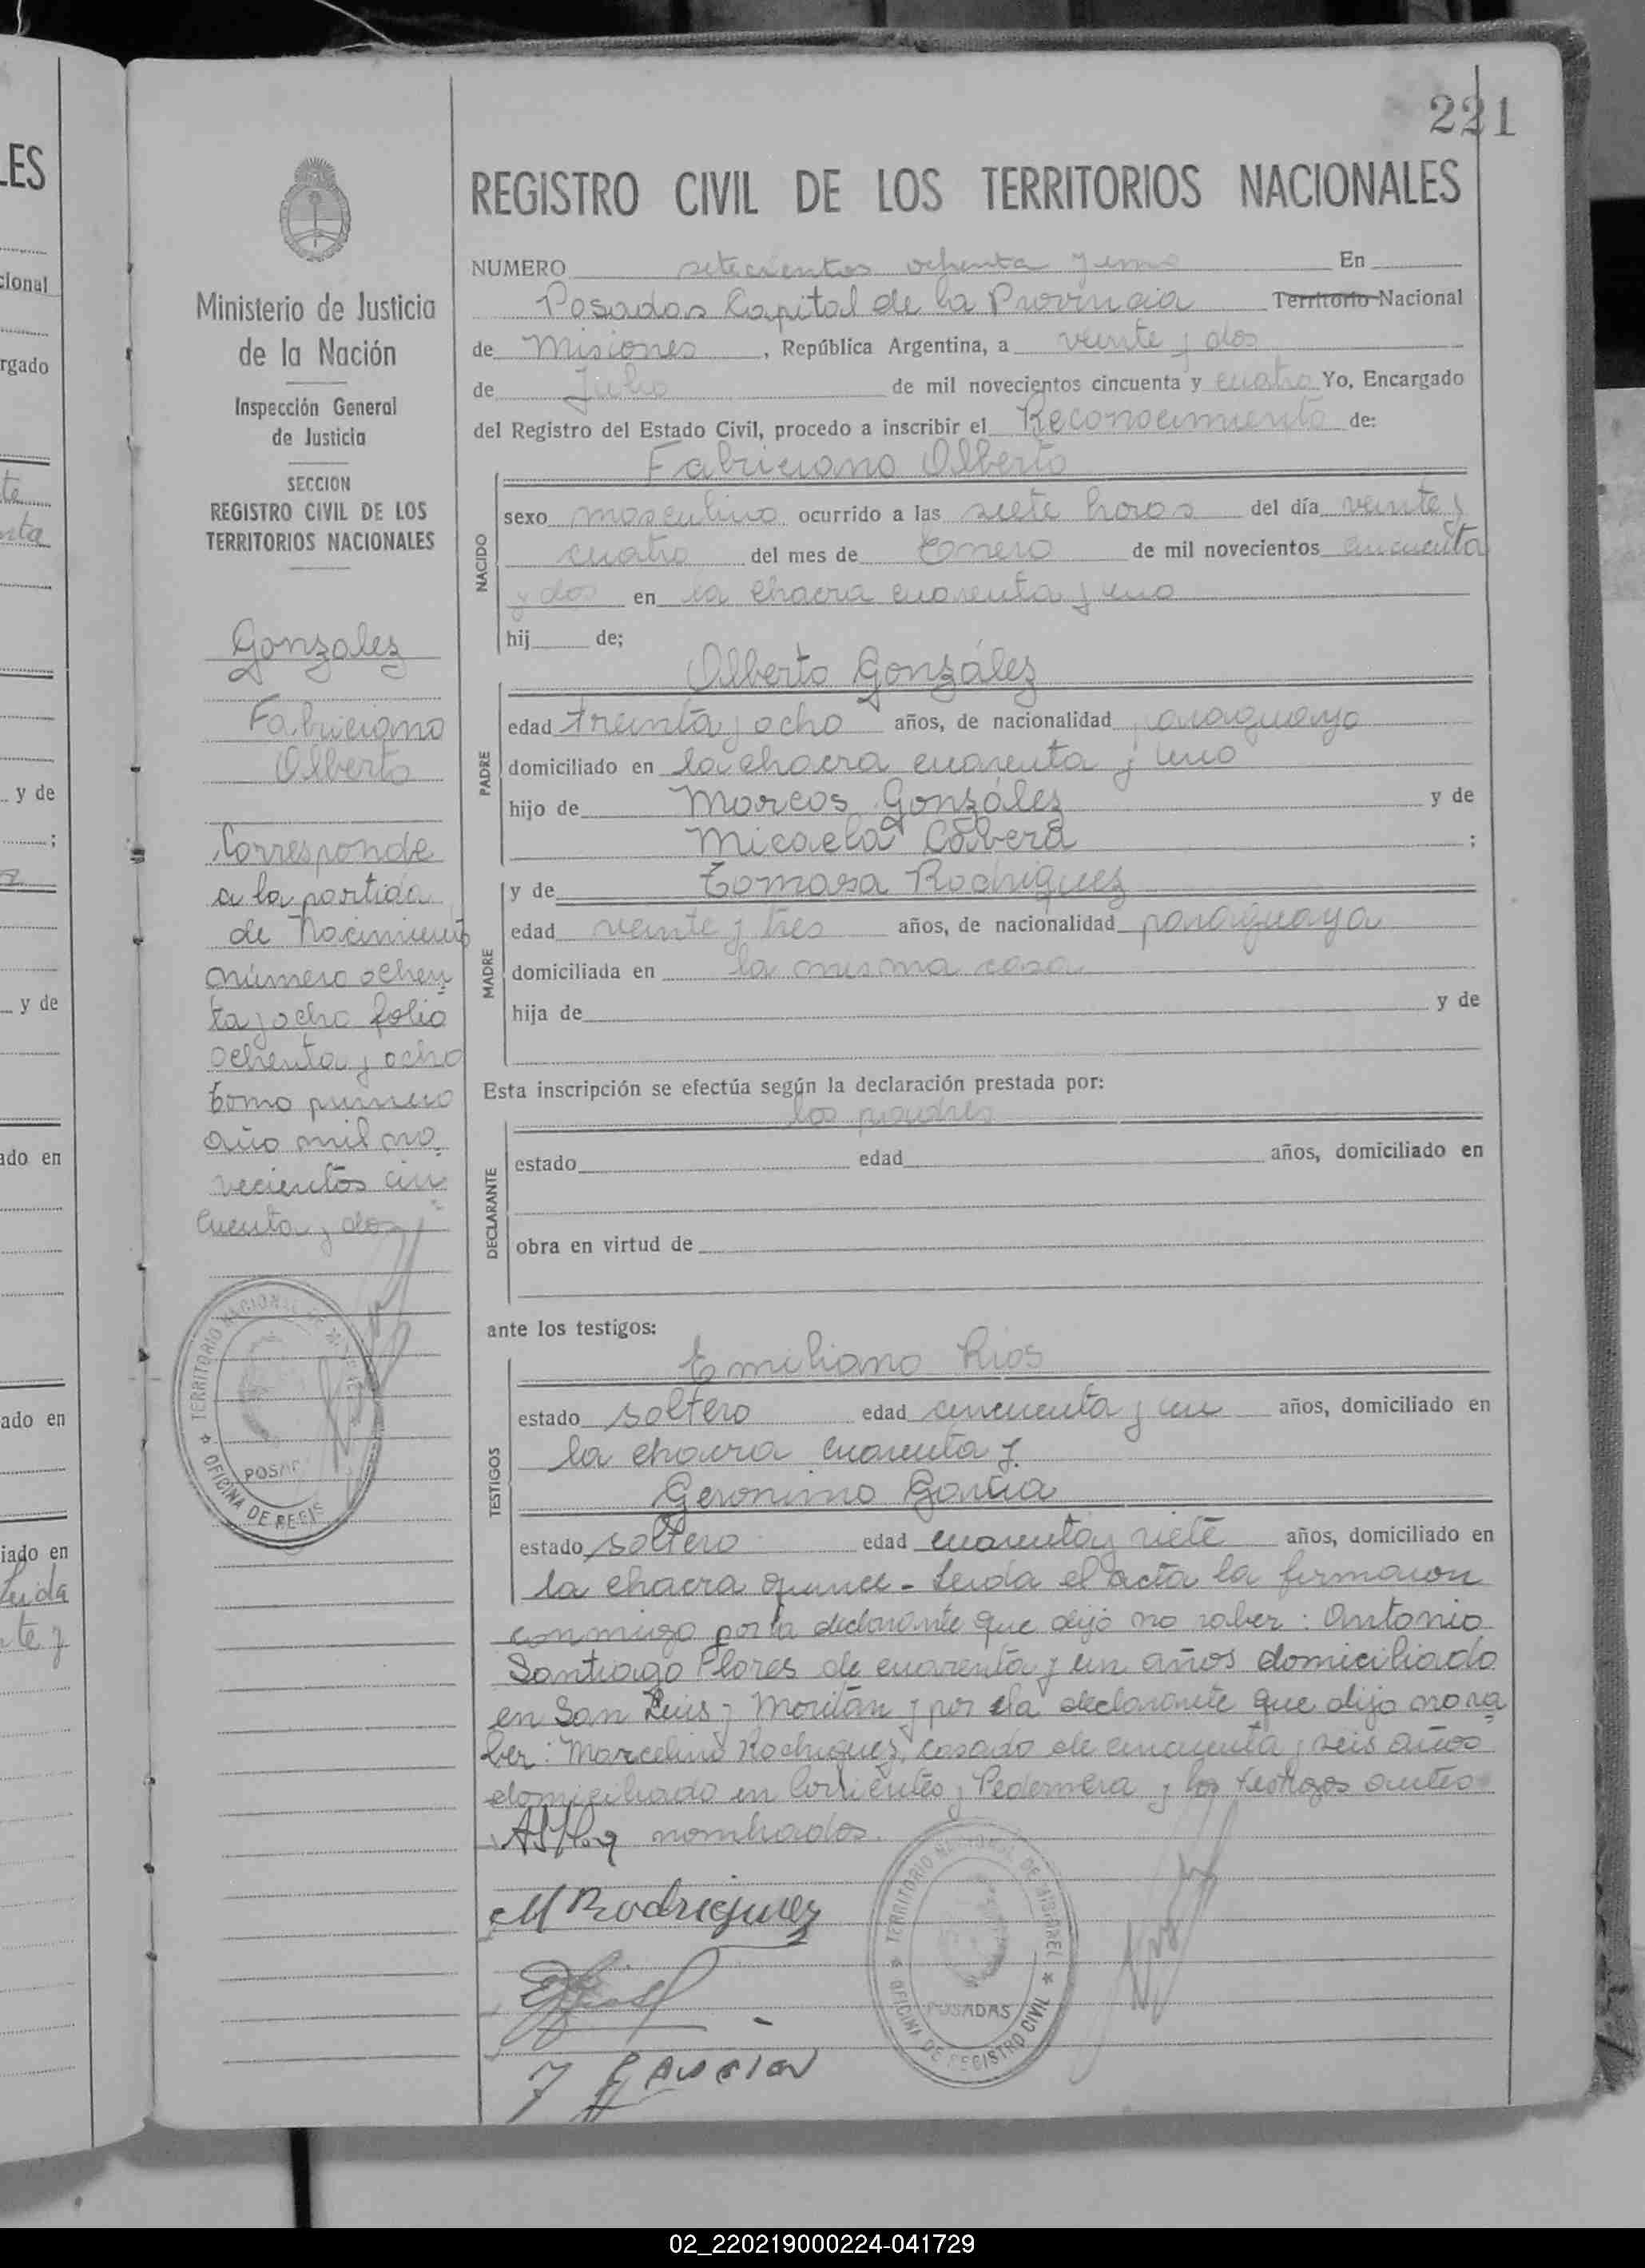 221
REGISTRO CIVIL DE LOS TERRITORIOS NACIONALES
NUMERO setecientos ochenta y uno En
Posadas Capital de la Provincia Territorio Nacional
de Misiones, República Argentina, a veinte y dos
de Julio de mil novecientos cincuenta y cuatro Yo, Encargado
del Registro del Estado Civil, procedo a inscribir el Reconocimiento de:
Fabriciano Alberto
NACIDO
sexo masculino ocurrido a las siete horas del día veinte y
cuatro del mes de Enero de mil novecientos cincuenta
y dos en la chacra cuarenta y uno
hij de;
PADRE
Alberto González
edad treinta y ocho años, de nacionalidad paraguayo
domiciliado en la chacra cuarenta y uno
hijo de Marcos Gonzáles y de
Micaela Cabera ;
MADRE
y de Tomasa Rodriguez
edad veinte y tres años, de nacionalidad paraguaya
domiciliada en la misma casa
hija de y de
Esta inscripción se efectúa según la declaración prestada por:
los padres
DECLARANTE
estado edad años, domiciliado en
obra en virtud de
ante los testigos:
TESTIGOS
Emiliano Rios
estado soltero edad cincuenta y un años, domiciliado en
la chacra cuarenta y.
Geronimo Garcia
estado soltero edad cuarenta y siete años, domiciliado en
la chacra quince - Leida el acta la firmaron
conmigo por la declarante que dijo no saber: Antonio
Santiago Flores de cuarenta y un años domiciliado
en San Luis y Moritán y por ela declarante que dijo no sa
ber: Marcelino Rodriguez, casado de cincuenta y seis años
domiciliado en Corrientes y Pedernera y los testigos antes
nombrados.
M Rodriguez
TERRITORIO NACIONAL DE MISIONES
POSADAS
OFICINA DE REGISTRO CIVIL
Ministerio de Justicia
de la Nación
Inspección General
de Justicia
SECCION
REGISTRO CIVIL DE LOS
TERRITORIOS NACIONALES
Gonzalez
Fabriciano
Alberto
Corresponde
a la partida
de Nacimiento
número ochen
ta y ocho folio
ochenta y ocho
tomo primero
año mil no
vecientos cin
cuenta y dos
TERRITORIO NACIONAL DE
POSA
OFICINA DE REGIS
LES
cional
rgado
te
nta
y de
;
y de
ado en
ado en
iado en
Leida
te y
02_220219000224-041729